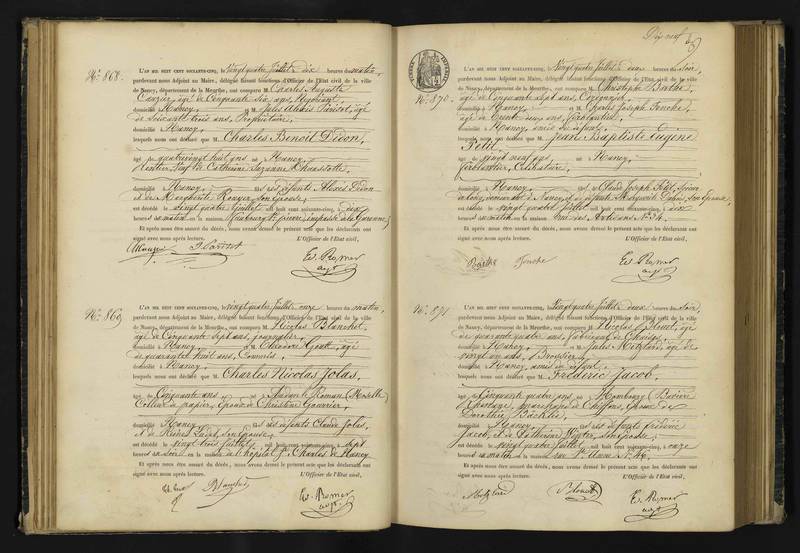 N° 868.
L'AN MIL HUIT CENT SOIXANTE-CINQ, le Vingt quatre Juillet dix heures du matin,
pardevant nous Adjoint au Maire, délégué faisant fonctions d'Officier de l'État civil de la ville
de Nancy, département de la Meurthe, ont comparu M. Charles Auguste
âgé de Cinquante Six ans, Négociant
domicilié à Nancy, et M. Jules Alexis Parisot, âgé
de Soixante trois ans, Propriétaire,
domicilié à Nancy,
lesquels nous ont déclaré que M. Charles Benoit Didon,
âgé de quatrevingt huit ans né à Nancy,
Rentier, Veuf de Catherine Suzanne
domicilié à Nancy, fils des défunts Alexis Didon
et de Marguerite son épouse,
est décédé le vingt quatre Juillet mil huit cent soixante-cinq, à dix
heures du matin en la maison Faubourg St pierre, impasse de la Garenne,
Et après nous être assuré du décès, nous avons dressé le présent acte que les déclarants ont
signé avec nous après lecture. L'Officier de l'État civil,
Parisot
N° 869
L'AN MIL HUIT CENT SOIXANTE-CINQ, le Vingt quatre Juillet onze heures du matin,
pardevant nous Adjoint au Maire, délégué faisant fonctions d'Officier de l'État civil de la ville
de Nancy, département de la Meurthe, ont comparu M. Nicolas Blanchet,
âgé de Cinquante Sept ans, journalier,
domicilié à Nancy, et M. âgé
de quarante huit ans, Commis,
domicilié à Nancy,
lesquels nous ont déclaré que M. Charles Nicolas Jolas,
âgé de Cinquante ans né à Audun le Roman (Moselle)
Colleur de papier, époux de Christine
domicilié à Nancy, fils des défunts Claude Jolas,
et de son épouse,
est décédé le vingt trois Juillet mil huit cent soixante-cinq, à Sept
heures du soir en la maison de l'hôpital St Charles de Nancy
Et après nous être assuré du décès, nous avons dressé le présent acte que les déclarants ont
signé avec nous après lecture. L'Officier de l'État civil,
Blanchet
Dix neuf
N° 870.
L'AN MIL HUIT CENT SOIXANTE-CINQ, le Vingt quatre Juillet deux heures du Soir,
pardevant nous Adjoint au Maire, délégué faisant fonctions d'Officier de l'État civil de la ville
de Nancy, département de la Meurthe, ont comparu M. Christophe Barthe,
âgé de Cinquante Sept ans, Cordonnier,
domicilié à Nancy, et M. Joseph Fouche,
âgé de Trente deux ans, ferblantier,
domicilié à Nancy, amis du défunt,
lesquels nous ont déclaré que M. Jean Baptiste Eugène
Petit
âgé de vingt neuf ans né à Nancy,
ferblantier, Célibataire,
domicilié à Nancy, fils de Claude Joseph Petit,
domicilié à Nancy, et de défunte Marguerite son épouse,
est décédé le vingt quatre Juillet mil huit cent soixante-cinq, à dix
heures du matin en la maison rue N° 34.
Et après nous être assuré du décès, nous avons dressé le présent acte que les déclarants ont
signé avec nous après lecture. L'Officier de l'État civil,
Barthe Fouche
N° 871.
L'AN MIL HUIT CENT SOIXANTE-CINQ, le Vingt quatre Juillet deux heures du Soir
pardevant nous Adjoint au Maire, délégué faisant fonctions d'Officier de l'État civil de la ville
de Nancy, département de la Meurthe, ont comparu M. Nicolas âgé
de quarante quatre ans, fabricant de
domicilié à Nancy, et M. Jules âgé de
vingt un ans, Brossier,
domicilié à Nancy, amis du défunt,
lesquels nous ont déclaré que M. Frédéric Jacob,
âgé de Cinquante quatre ans né à Hombourg (Bavière
Rhénane), marchand de Chiffons, époux de
Dorothée
domicilié à Nancy, fils des défunts Frédéric
Jacob, et de Catherine son épouse,
est décédé le vingt quatre Juillet mil huit cent soixante-cinq, à onze
heures du matin en la maison rue Ste Anne N° 44.
Et après nous être assuré du décès, nous avons dressé le présent acte que les déclarants ont
signé avec nous après lecture. L'Officier de l'État civil,